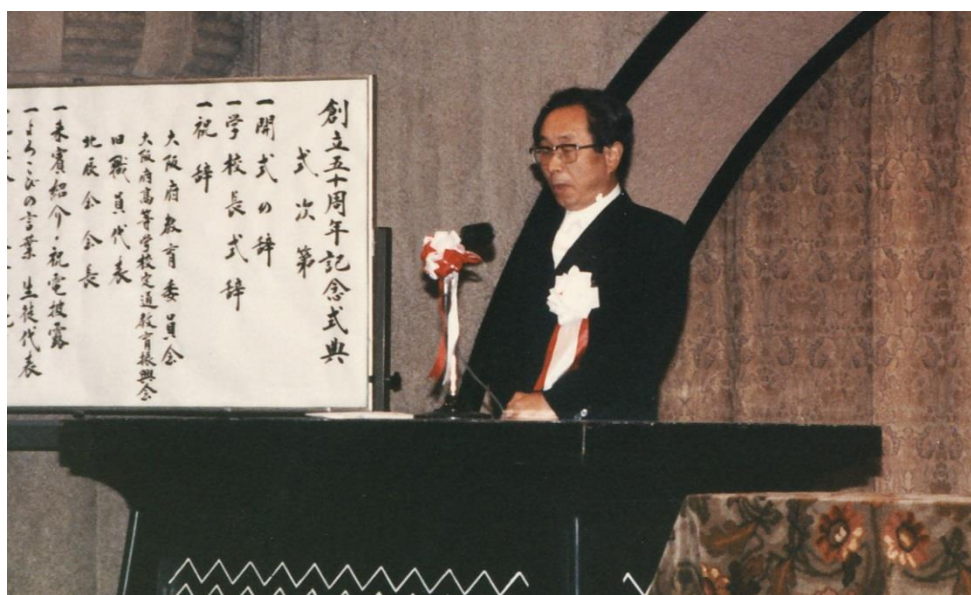 創立五十周年記念式典
式次第
一開式の辞
一学校長式辞
一祝辞
大阪府教育委員会
大阪府高等学校定通教育振興会
旧職員代表
北辰会会長
一来賓紹介・祝電披露
一よろこびの言葉 生徒代表